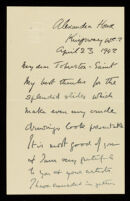 Alexandra House
Kingsway WC2
April 23 1942
My dear Tolurton - Saint
My best thanks for the
splendid slides which
make even my crude
drawings look presentable
It is most good of you
& I am very grateful
to you & your artists
I have succeeded in getting